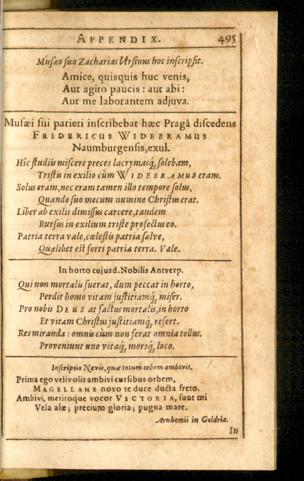 APPENDIX. 495
Musæo suo Zacharias Ursinus hoc inscripsit.
Amice, quisquis huc venis,
Aut agito paucis: aut abi:
Aut me laborantem adjuva.
Musæi sui parieti inscribebat hæc Pragâ discedens
FRIDERICUS WIDEBRAMUS
Naumburgensis, exul.
Hîc studiis miscere preces lacrymasq́, solebam,
Tristis in exilio cùm WIDEBRAMUS eram.
Solus eram, nec eram tamen illo tempore solus,
Quando suo mecum numine Christus erat.
Liber ab exiliis dimissus carcere, tandem
Rursus in exilium triste profectus eo.
Patria terra vale, cœlestis patria salve,
Quælibet est forti patria terra. Vale.
In horto cujusd. Nobilis Antverp.
Qui non mortalis fuerat, dum peccat in horto,
Perdit homo vitam justitiamq́, miser.
Pro nobis DEUS at factus mortalis, in horto
Et vitam Christus justitiamq́, refert.
Res miranda: omnis cùm non ferat omnia tellus.
Proveniunt uno vitaq́, morsq́, loco.
Inscriptio Navis, quæ totum orbem ambivit.
Prima ego velivolis ambivi cursibus orbem,
MAGELLANE novo te duce ducta freto.
Ambivi, meritoque vocor VICTORIA, sunt mi
Vela alæ; precium gloria; pugna mare.
Arnhemii in Geldria.
In